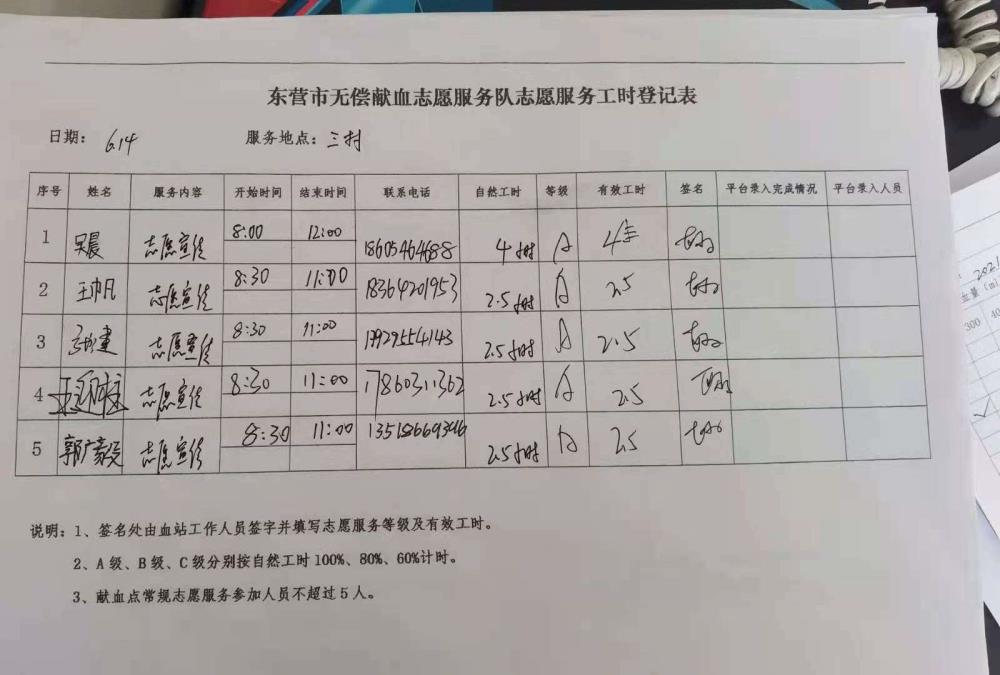 东营市无偿献血志愿服务队志愿服务工时登记表
日期： 6.14 服务地点：三村
序号 姓名 服务内容 开始时间 结束时间 联系电话 自然工时 等级 有效工时 签名 平台录入完成情况 平台录入人员
1 吴晨 志愿宣传 8:00 12:00 18605464688 4小时 A 4
2 王帅凡 志愿宣传 8:30 11:00 18364201953 2.5小时 A 2.5
3 志愿宣传 8:30 11:00 13929554143 2.5小时 A 2.5
4 志愿宣传 8:30 11:00 17860311362 2.5小时 A 2.5
5 郭广豪 志愿宣传 8:30 11:00 2.5小时 A 2.5
说明：1、签名处由血站工作人员签字并填写志愿服务等级及有效工时。
2、A 级、B 级、C 级分别按自然工时 100%、80%、60%计时。
3、献血点常规志愿服务参加人员不超过 5 人。
2021
300